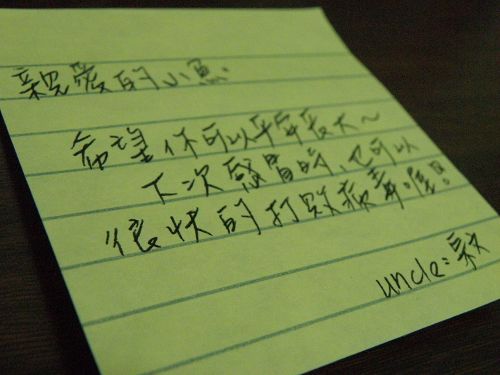 親愛的小魚.
希望你可以平安長大~
下次感冒時，也可以
很快的打敗病毒喔!!
uncle: